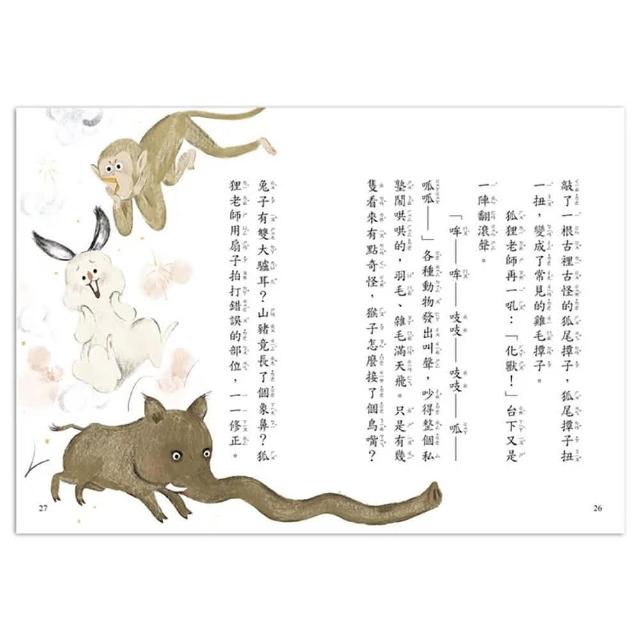 敲了一根古裡古怪的狐尾撢子，狐尾撢子扭
一扭，變成了常見的雞毛撢子。
狐狸老師再一吼：「化獸！」台下又是
一陣翻滾聲。
「哞──哞──吱吱──吱吱──呱──
呱呱──」各種動物發出叫聲，吵得整個私
塾鬧哄哄的，羽毛、雜毛滿天飛。只是有幾
隻看來有點奇怪，猴子怎麼接了個鳥嘴？
26
兔子有雙大驢耳？山豬竟長了個象鼻？狐
狸老師用扇子拍打錯誤的部位，一一修正。
27